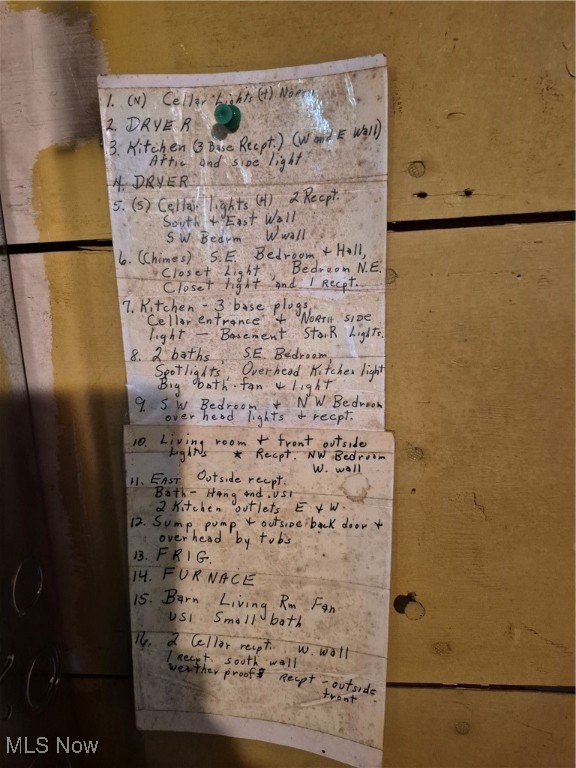 1. (N) Cellar Lights (4) North
2. DRYER
3. Kitchen (3 Base Recpt.) (W and E Wall)
Attic and side light
4. DRYER
5. (S) Cellar lights (4) 2 Recpt.
South & East Wall
S W Bedrm Wwall
6. (Chimes) S.E. Bedroom & Hall,
Closet Light, Bedroom N.E.
Closet light and 1 Recpt.
7. Kitchen - 3 base plugs,
Cellar entrance & NORTH SIDE
light - Basement StaiR Lights.
8. 2 baths, S.E. Bedroom,
Spotlights, Overhead Kitchen light
Big bath fan & light
9. S W Bedroom & N W Bedroom
over head lights & recpt.
10. Living room & front outside
lights * Recpt. NW Bedroom
W. wall
11. EAST Outside recpt.
Bath - Hang and .US1
2 Kitchen outlets E & W.
12. Sump pump & outside back door &
overhead by tubs
13. FRIG.
14. FURNACE
15. Barn Living Rm Fan
US1 Small bath
16. 2 Cellar recpt. W. wall
1 Recpt. South wall
weather proof Recpt - outside
front
MLS Now